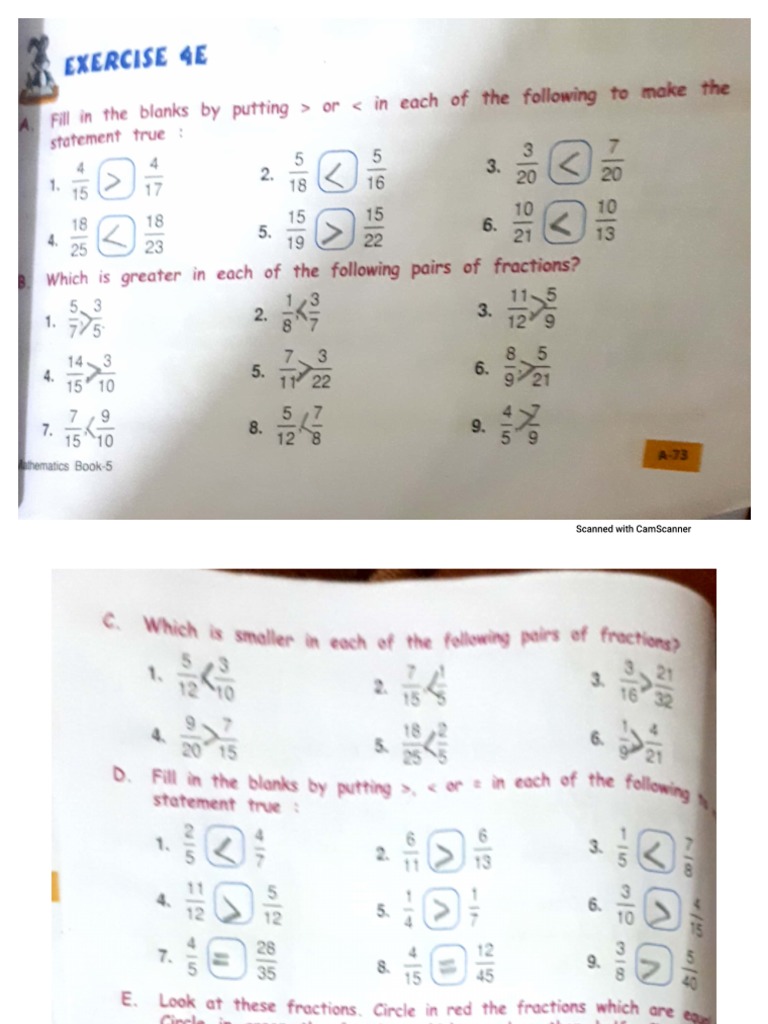 EXERCISE 4E
A. Fill in the blanks by putting > or < in each of the following to make the
statement true :
1. 4/15 > 4/17 2. 5/18 < 5/16 3. 3/20 < 7/20
4. 18/25 < 18/23 5. 15/19 > 15/22 6. 10/21 < 10/13
B. Which is greater in each of the following pairs of fractions?
1. 5/7 > 3/5 2. 1/8 < 3/7 3. 11/12 > 5/9
4. 14/15 > 3/10 5. 7/11 > 3/22 6. 8/9 > 5/21
7. 7/15 < 9/10 8. 5/12 < 7/8 9. 4/5 > 7/9
Mathematics Book-5 A-73
Scanned with CamScanner
C. Which is smaller in each of the following pairs of fractions?
1. 5/12 < 3/10 2. 7/15 < 1/5 3. 3/16 > 21/32
4. 9/20 > 7/15 5. 18/25 < 2/5 6. 1/9 > 4/21
D. Fill in the blanks by putting >, < or = in each of the following to
statement true :
1. 2/5 < 4/7 2. 6/11 > 6/13 3. 1/5 < 7/8
4. 11/12 > 5/12 5. 1/4 > 1/7 6. 3/10 > 4/15
7. 4/5 = 28/35 8. 4/15 = 12/45 9. 3/8 > 5/40
E. Look at these fractions. Circle in red the fractions which are